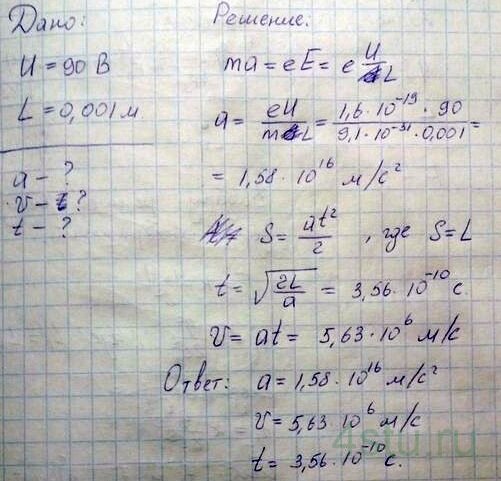 Дано:
U = 90 В
L = 0,001 м
a - ?
v - ?
t - ?
Решение:
ma = eE = e U/L
a = eU/mL = 1,6·10^-19·90/9,1·10^-31·0,001 =
= 1,58·10^16 м/с²
S = at²/2 , где S=L
t = √(2L/a) = 3,56·10^-10 с.
v = at = 5,63·10^6 м/с
Ответ: a = 1,58·10^16 м/с²
v = 5,63·10^6 м/с
t = 3,56·10^-10 с.